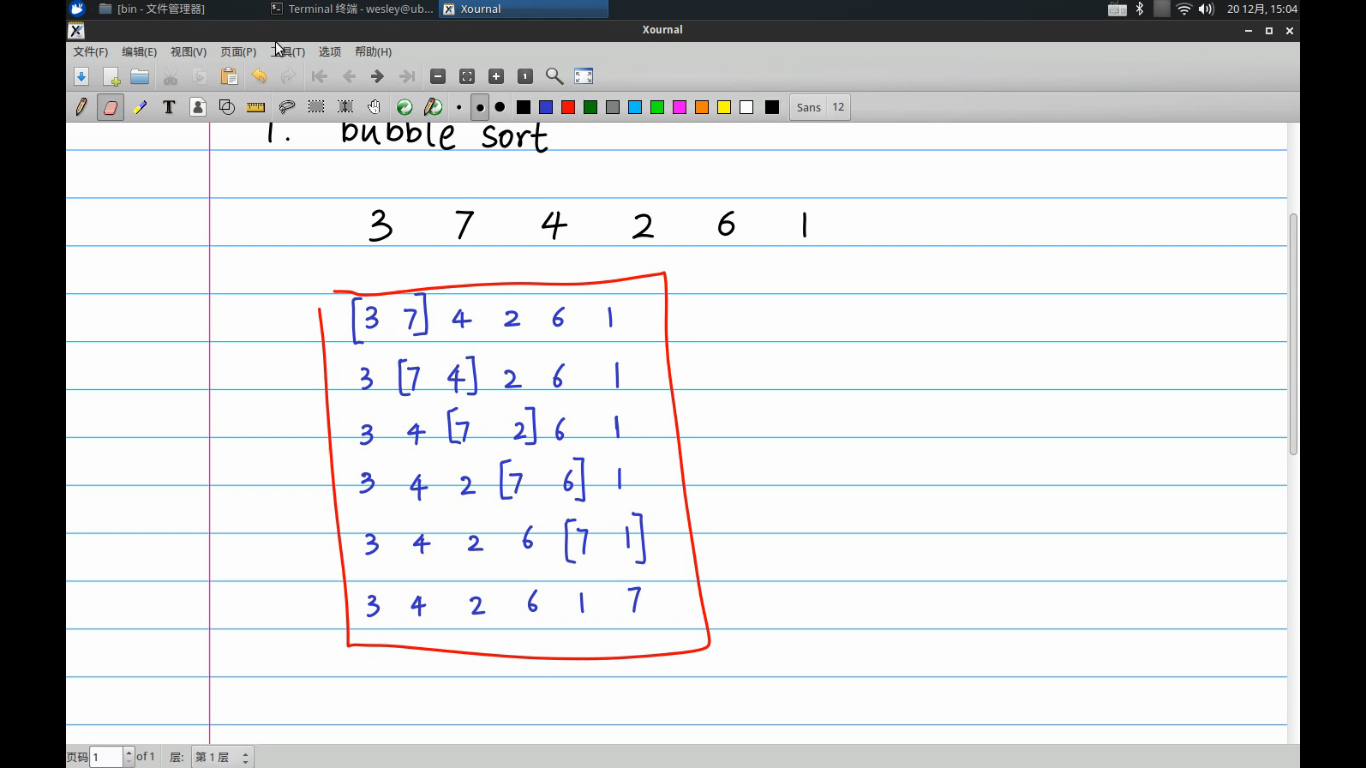 [bin - 文件管理器] Terminal 终端 - wesley@ub... Xournal 20 12月, 15:04
Xournal
文件(F) 编辑(E) 视图(V) 页面(P) 具(T) 选项 帮助(H)
1
T Sans 12
1. bubble sort
3 7 4 2 6 1
[3 7] 4 2 6 1
3 [7 4] 2 6 1
3 4 [7 2] 6 1
3 4 2 [7 6] 1
3 4 2 6 [7 1]
3 4 2 6 1 7
页码 1 of 1 层: 第 1 层